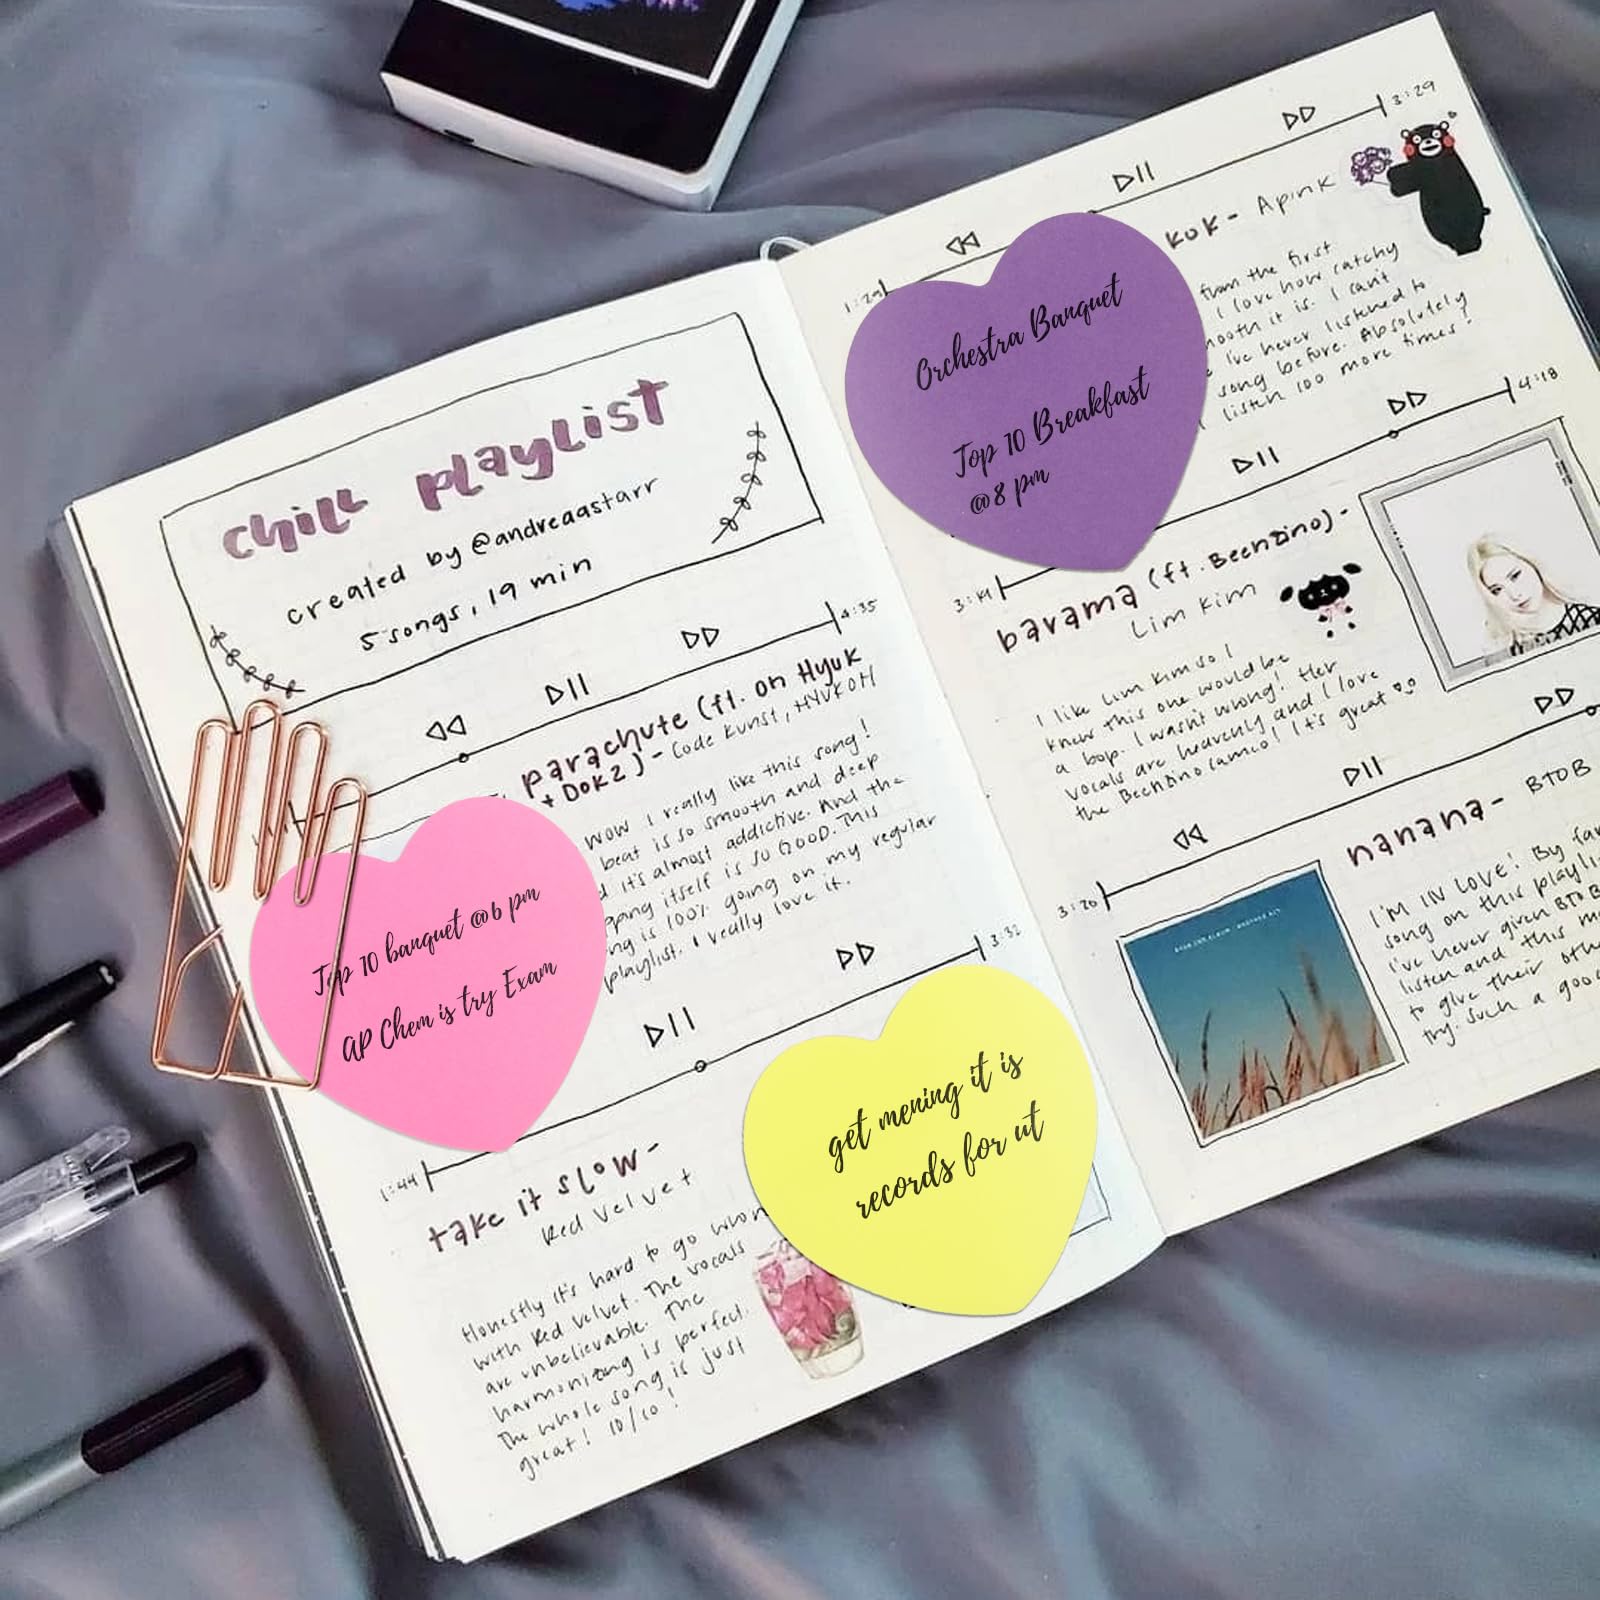 chill playlist
created by @andreaastarr
5 songs, 19 min
4:35
parachute (ft. oh Hyuk
+ DOK2) - Code Kunst, HYUKOH
Wow I really like this song!
beat is so smooth and deep
it's almost addictive. And the
itself is SO GOOD. This
is 100% going on my regular
playlist. I really love it.
Top 10 banquet @6 pm
AP Chem is try Exam
3:32
1:44
take it slow -
Red Velvet
Honestly it's hard to go
with Red Velvet. The vocals
are unbelievable. The
harmonizing is perfect.
The whole song is just
great! 10/10!
get mening it is
records for ut
3:29
1:29
KOK - Apink
from the first
I love how catchy
it is. I can't
I've never listened to
song before. Absolutely
listen 100 more times!
Orchestra Banquet
Top 10 Breakfast
@8 pm
4:18
3:14
barama (ft. Beenzino) -
Lim Kim
I like Lim Kim so I
knew this one would be
a bop. I wasn't wrong! Her
vocals are heavenly and I love
the Beenzino cameo! It's great
3:20
nanana - BTOB
I'M IN LOVE! By far
song on this
I've never given BTOB
listen and this
to give their
try. Such a good